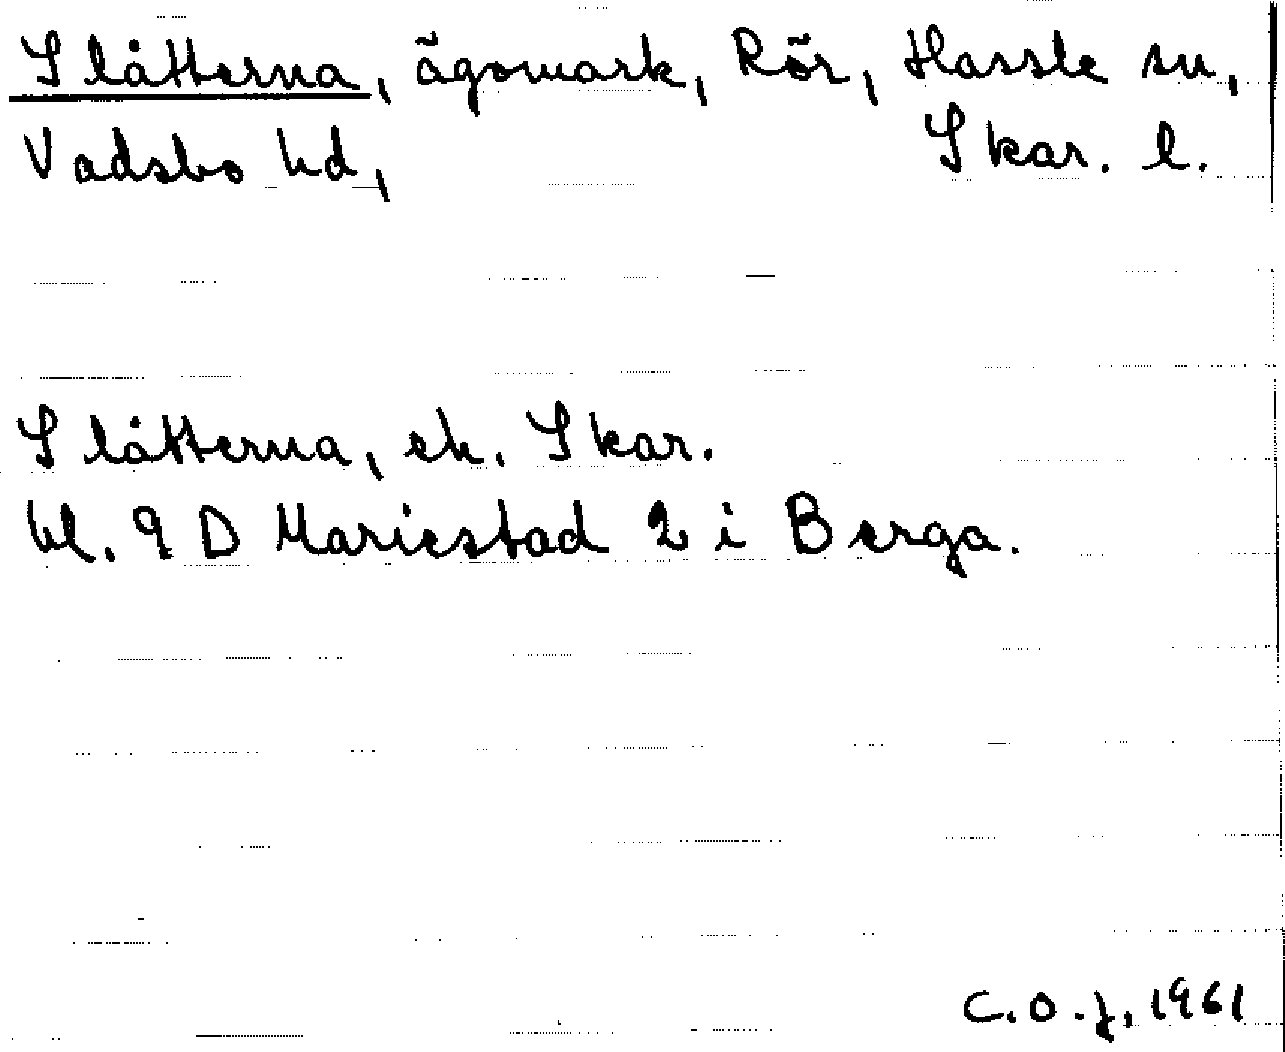 Slåtterna, ägomark, Rör, Hassle sn,
Vadsbo hd, Skar. l.
Slåtterna, ek. Skar.
bl. 9 D Mariestad 2 i Berga.
C.O.J. 1961